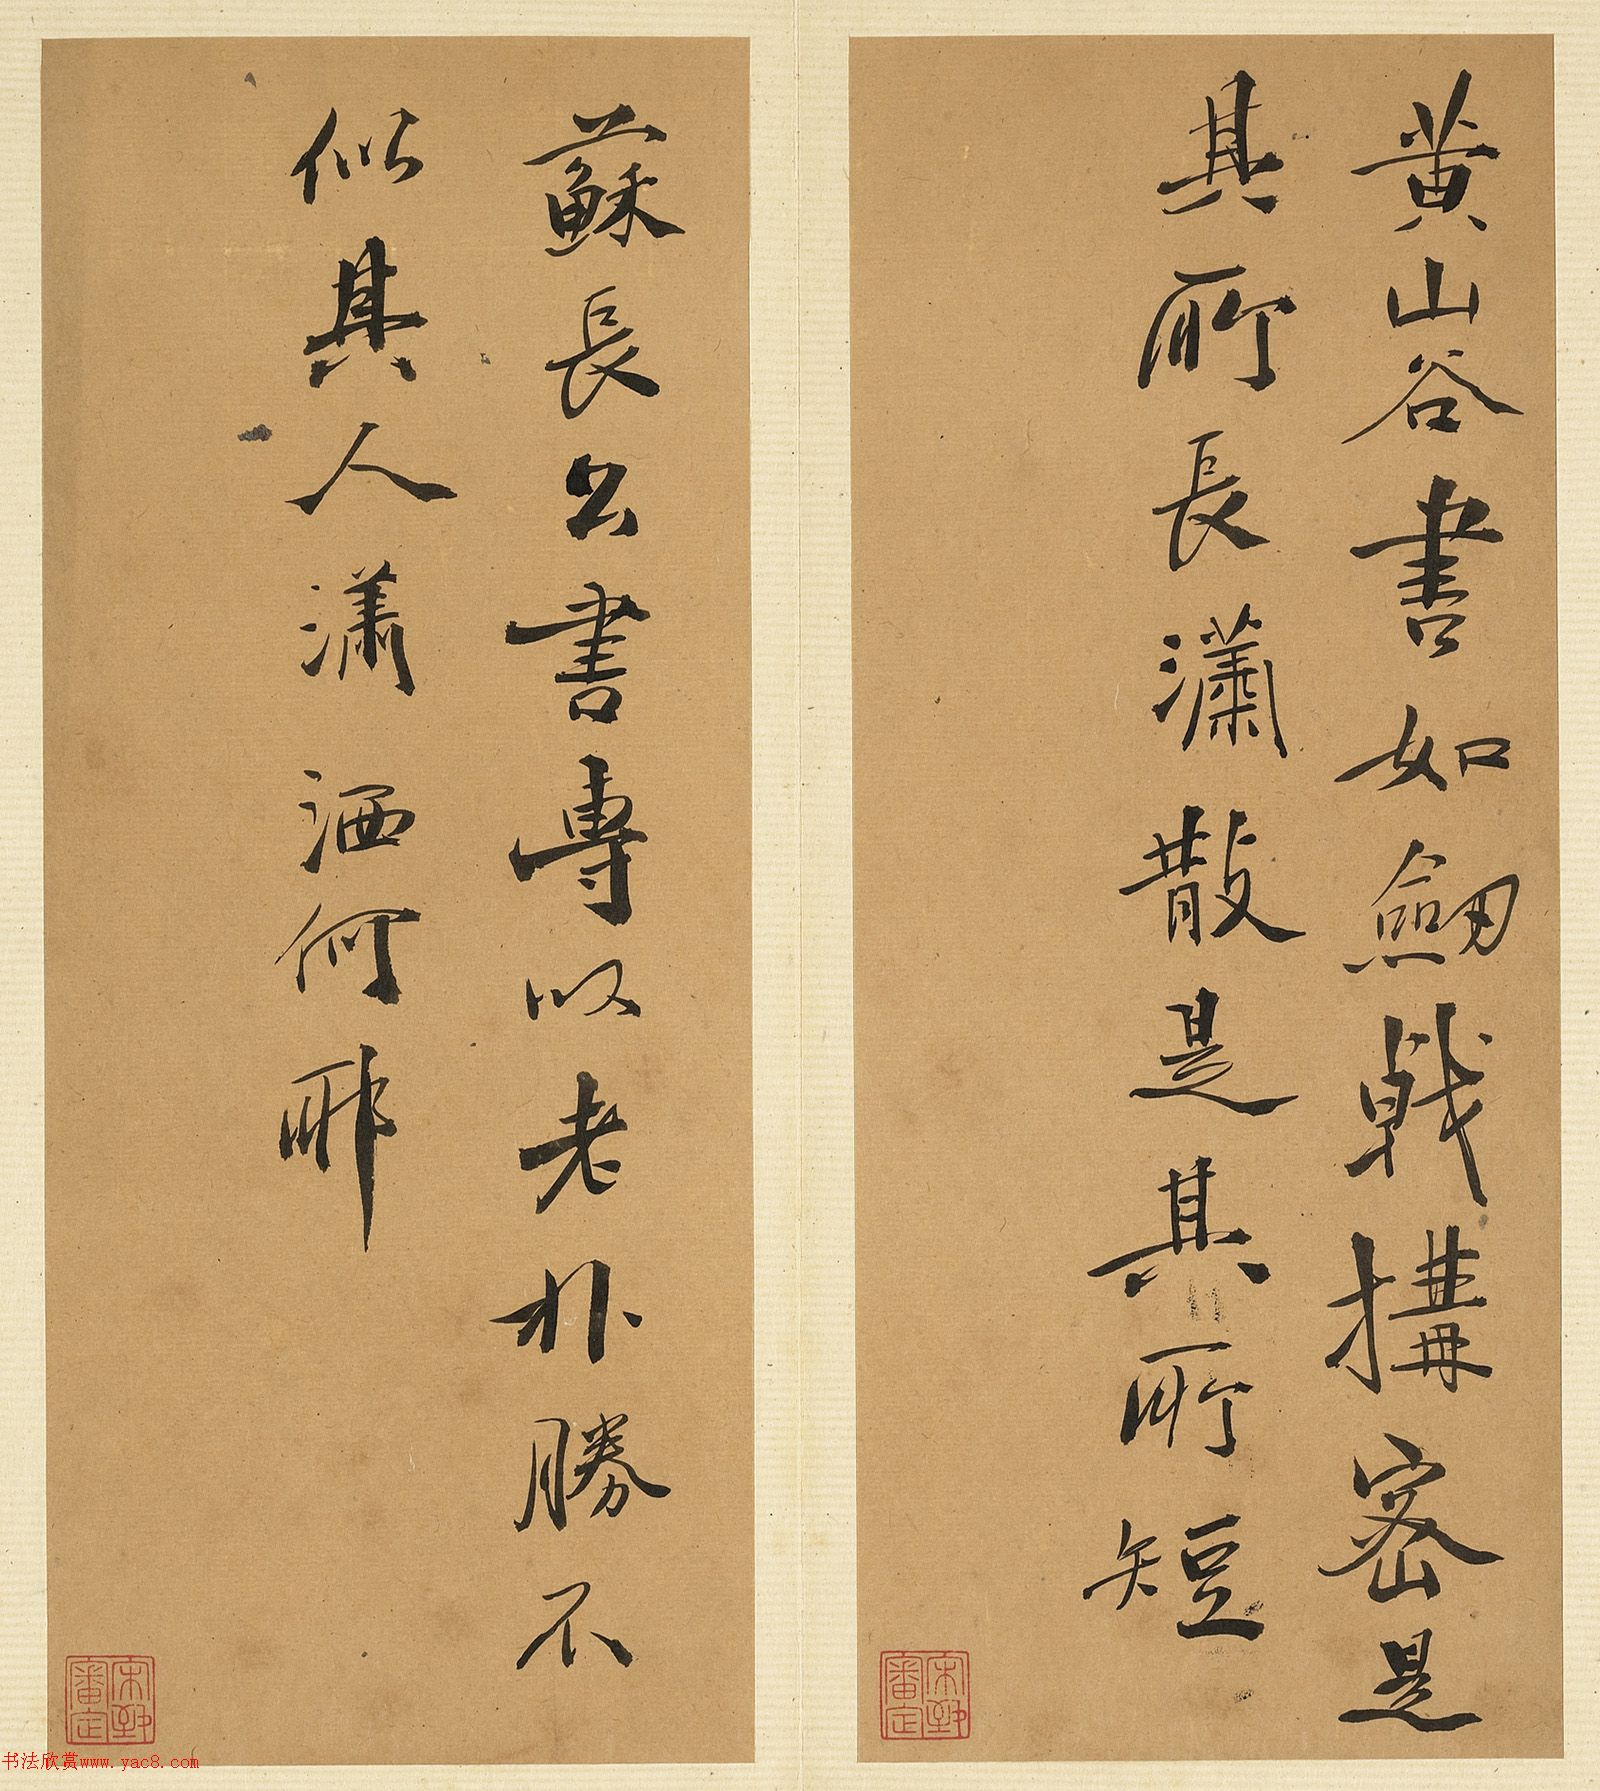 黄山谷書如劒戟搆密是
其所長瀟散是其所短
蘇長公書專以老朴勝不
似其人瀟洒何耶
宋致審定
宋致審定
书法欣赏www.yac8.com